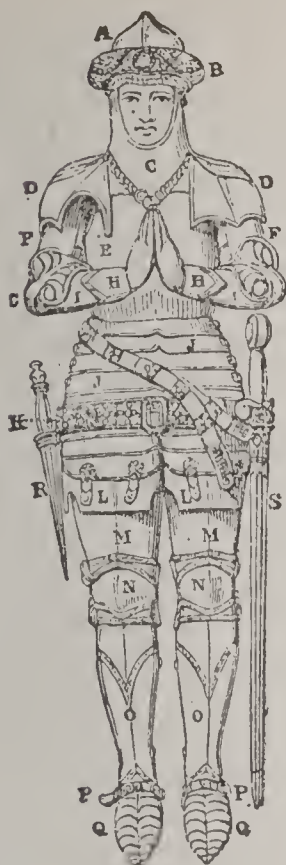 A B
C
D D
P F
E
H H
G I I
J
J
K
R L L S
M M
N N
O O
P P
Q Q